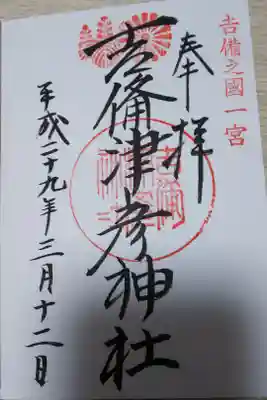 吉備之國一宮
奉拝
吉備津彦神社
平成二十九年三月十二日